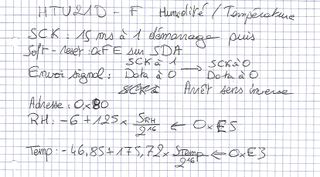 HTU21D - F Humidité / Température
SCK : 15 ms à 1 démarrage puis
Soft-reset : 0xFE sur SDA
SCK à 1 → SCK à 0
Envoi signal : Data à 0 Data à 0
Arrêt sens inverse
Adresse : 0x80
RH : -6 + 125 × SRH / 2^16 ← 0xE5
Temp : -46,85 + 175,72 × STemp / 2^16 ← 0xE3